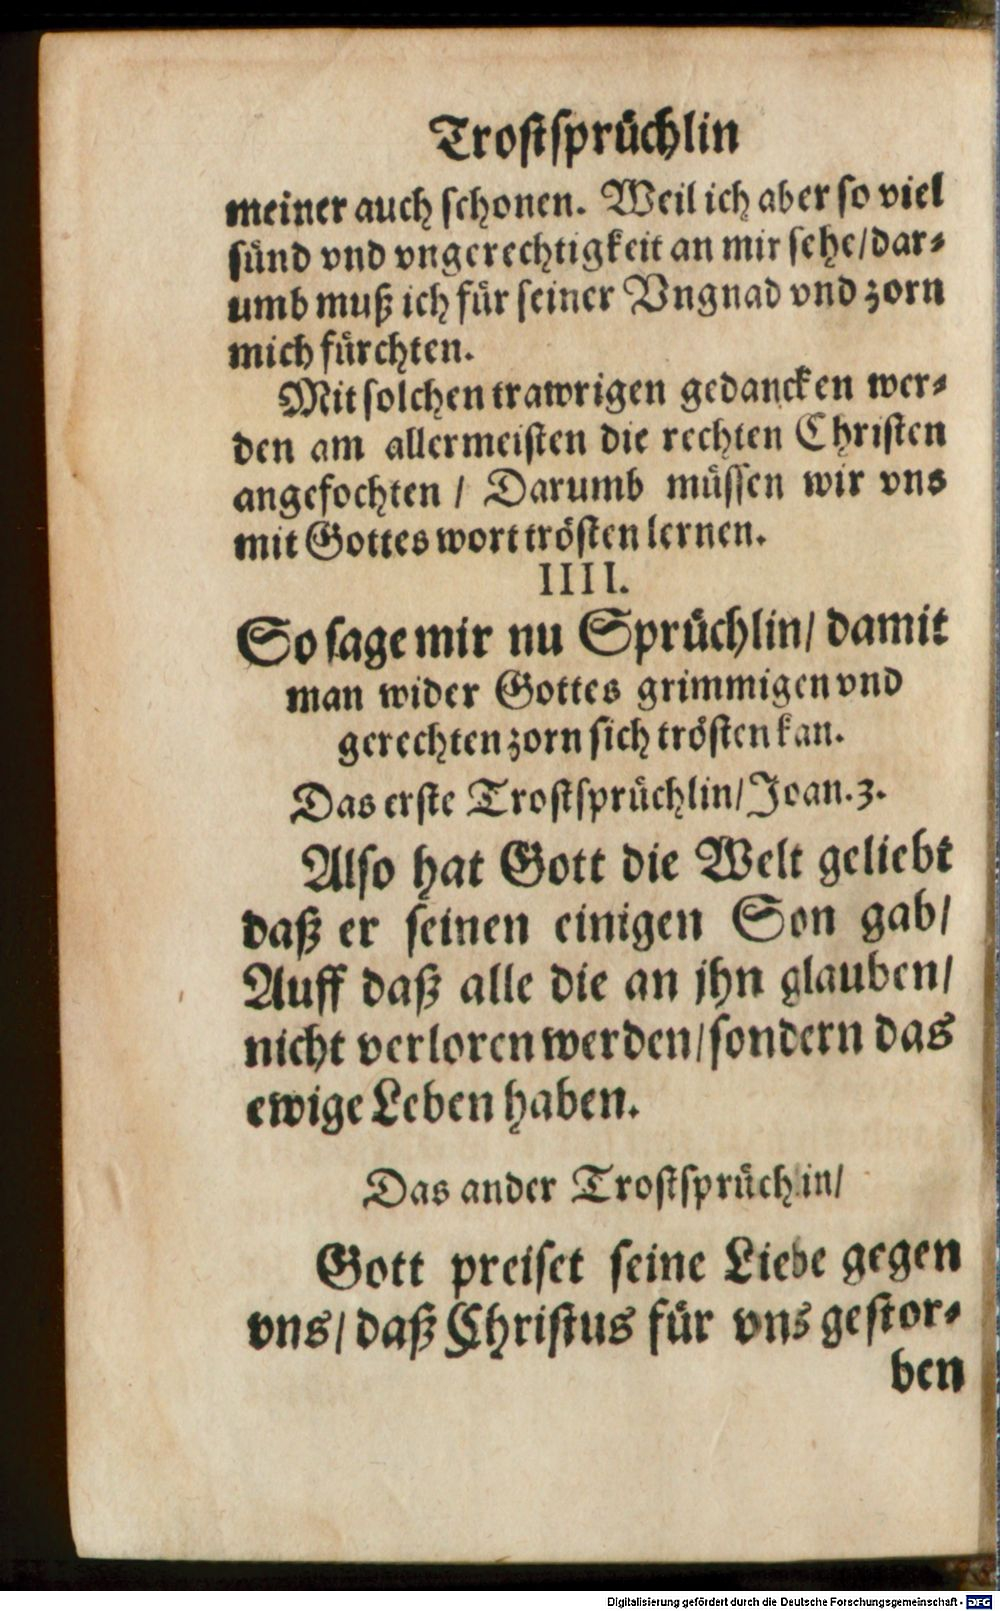 Trostsprüchlin
meiner auch schonen. Weil ich aber so viel
sünd vnd vngerechtigkeit an mir sehe/dar-
umb muß ich für seiner Vngnad vnd zorn
mich fürchten.
Mit solchen trawrigen gedancken wer-
den am allermeisten die rechten Christen
angefochten / Darumb müssen wir vns
mit Gottes wort trösten lernen.
IIII.
So sage mir nu Sprüchlin/ damit
man wider Gottes grimmigen vnd
gerechten zorn sich trösten kan.
Das erste Trostsprüchlin/Joan.3.
Also hat Gott die Welt geliebt
daß er seinen einigen Son gab/
Auff daß alle die an jhn glauben/
nicht verloren werden/sondern das
ewige Leben haben.
Das ander Trostsprüchlin/
Gott preiset seine Liebe gegen
vns/daß Christus für vns gestor-
ben
Digitalisierung gefördert durch die Deutsche Forschungsgemeinschaft - DFG